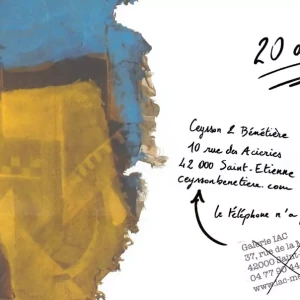 20
Ceysson & Bénétière
10 rue des Aciéries
42 000 Saint-Etienne
ceyssonbenetiere.com
le téléphone n'a
Galerie IAC
37, rue de la
42000 Saint-
04 77 9
www.iac-me